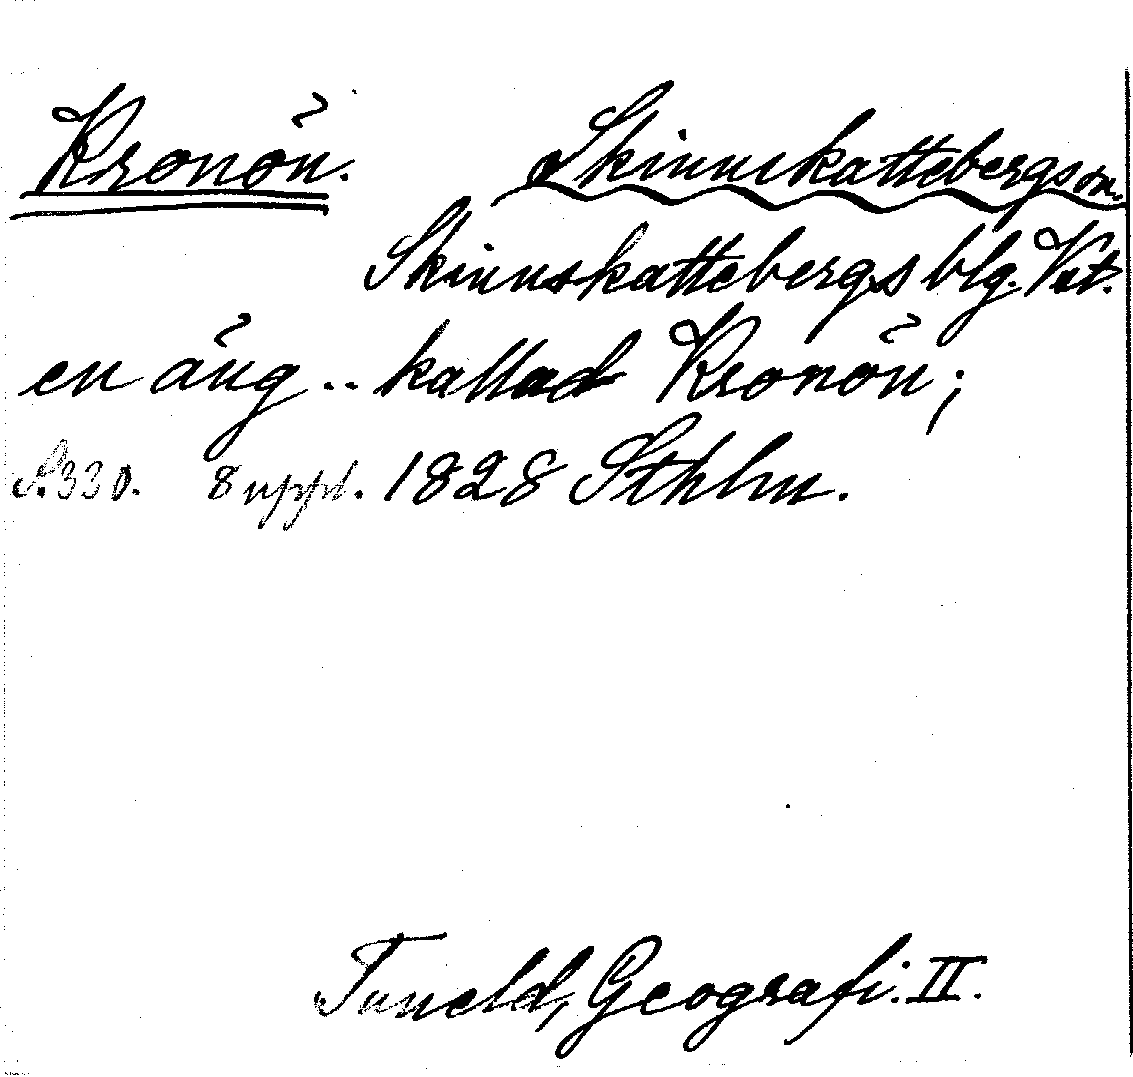 Kronön. Skinnskattebergs sn.
Skinnskattebergs blg. Vst.
en äng .. kallad Kronön;
S. 330. 8 uppl. 1828 Sthlm.
Tuneld, Geografi. II.